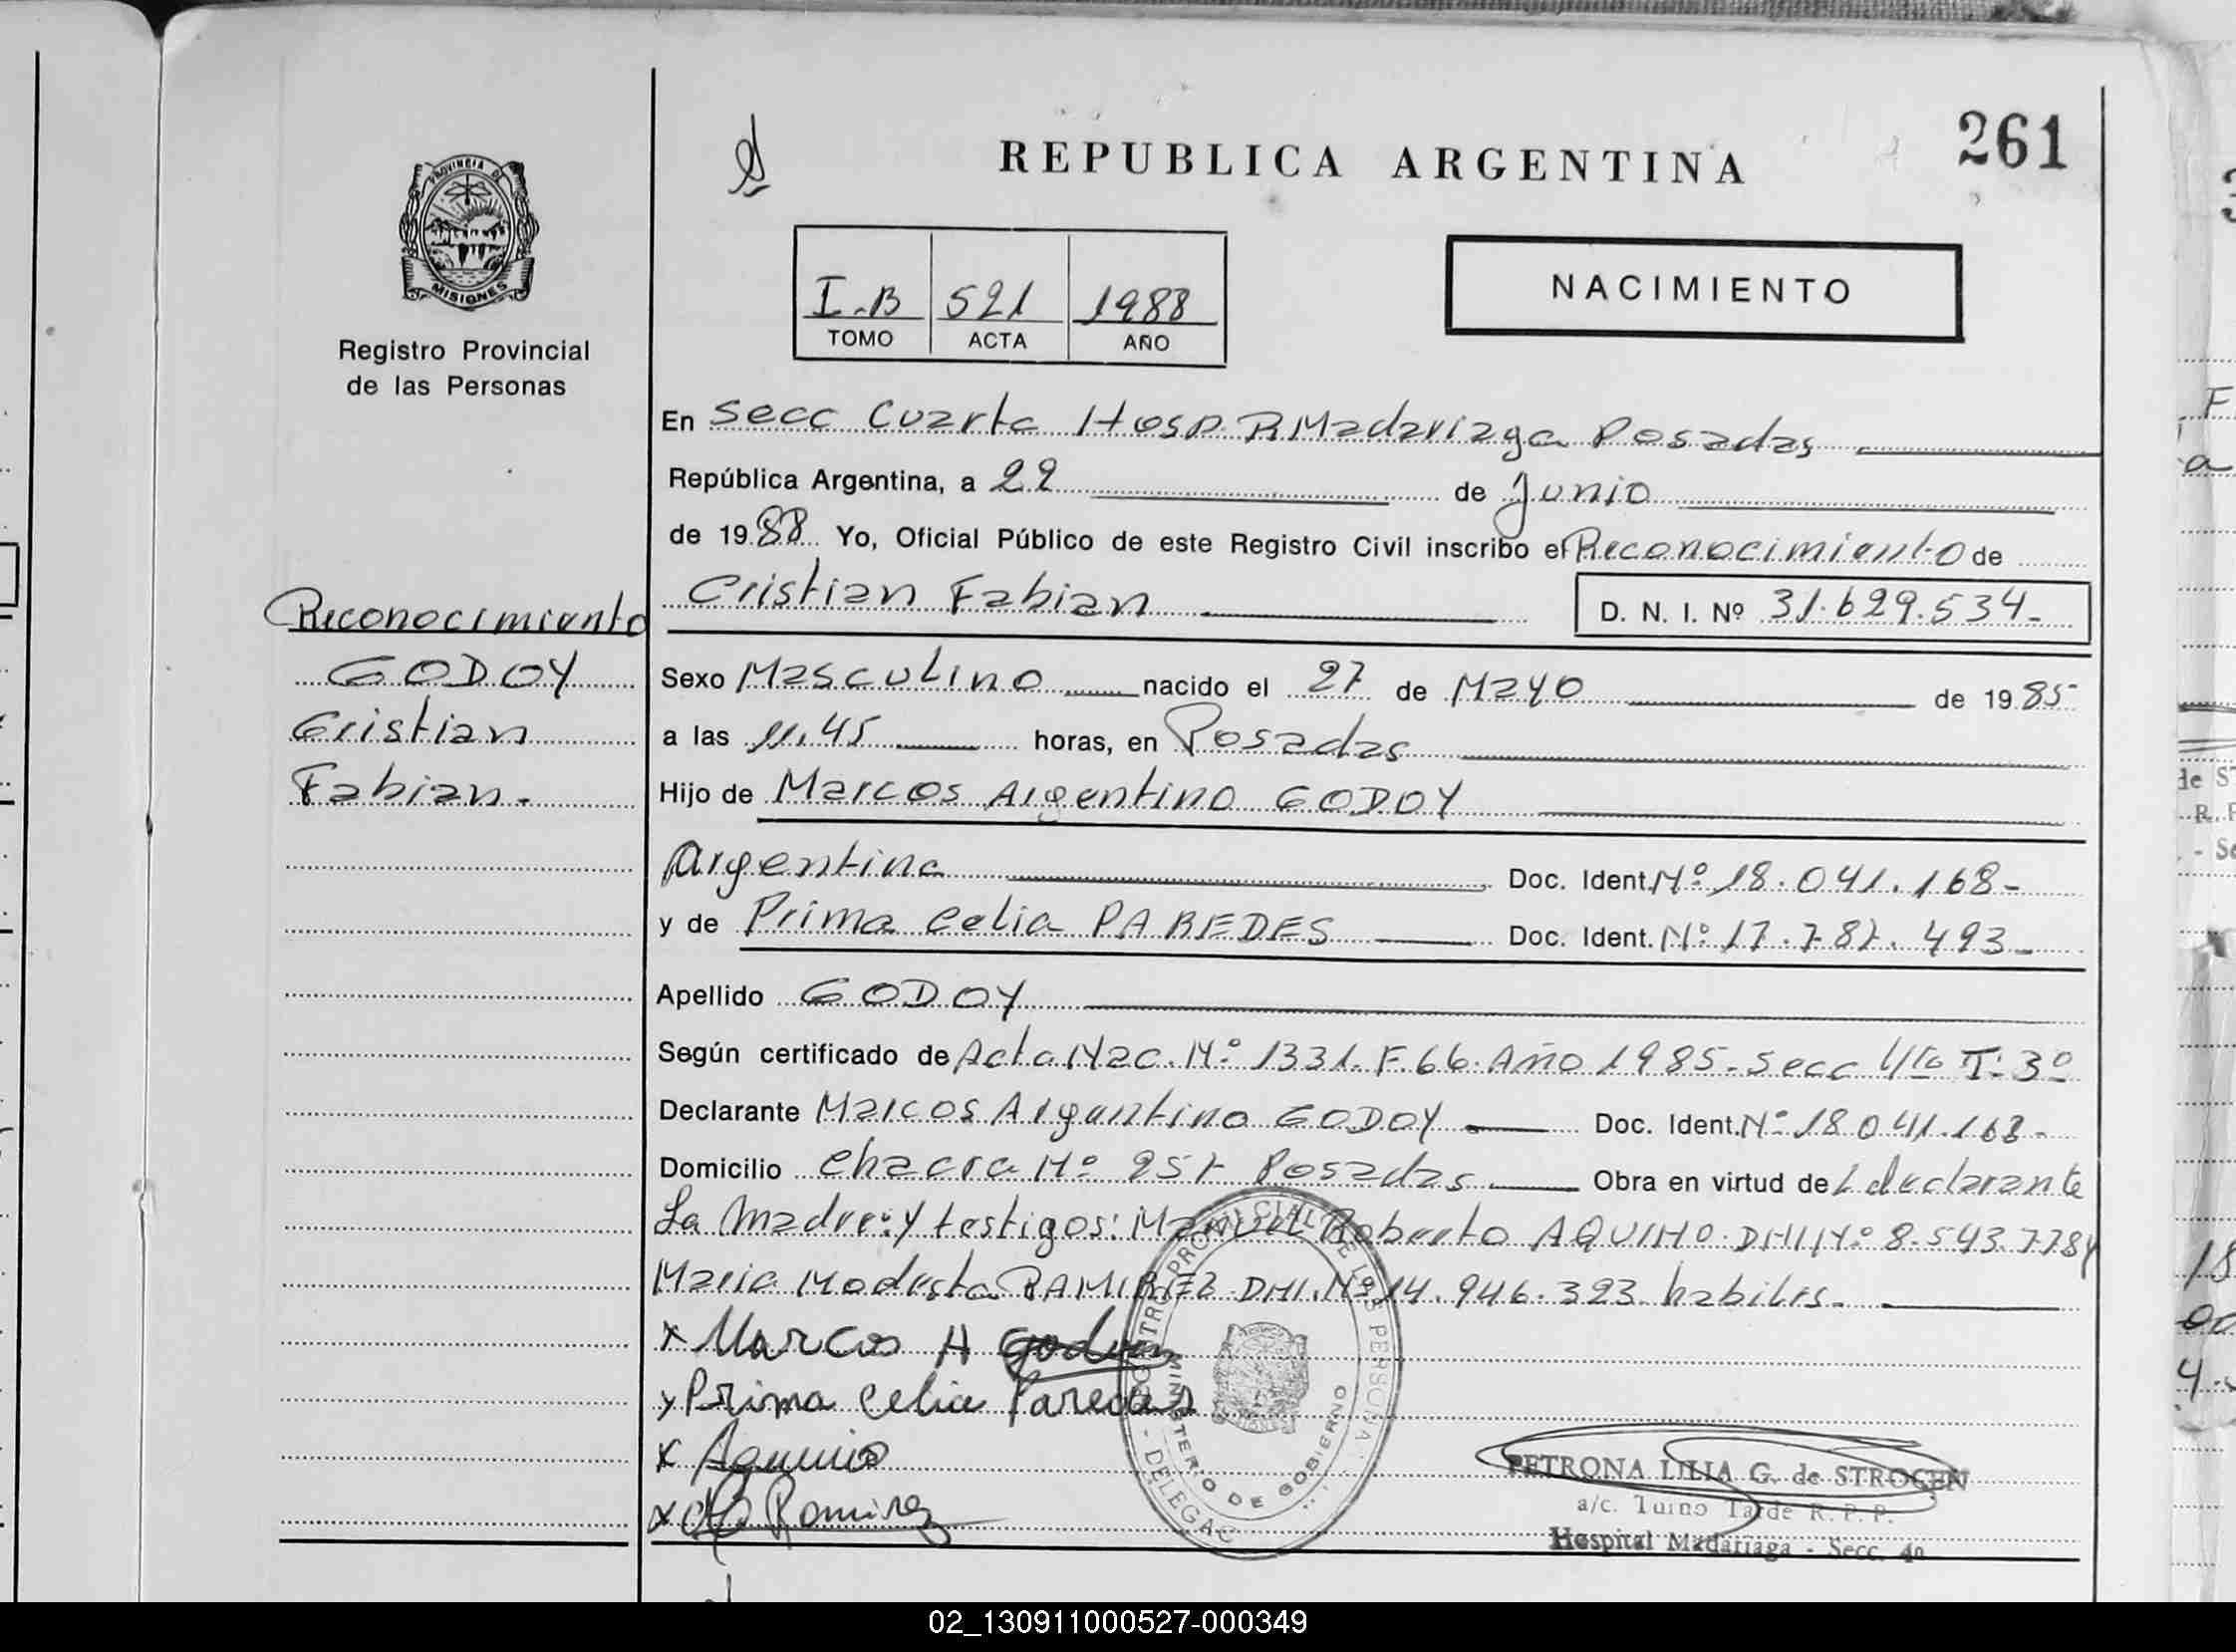 261
REPUBLICA ARGENTINA
PROVINCIA DE
MISIONES
Registro Provincial
de las Personas
NACIMIENTO
I.B 521 1988
TOMO ACTA AÑO
En Secc Cuarta Hosp. R Madariaga Posadas
República Argentina, a 22 de Junio
de 1988 Yo, Oficial Público de este Registro Civil inscribo el Reconocimiento de
Cristian Fabian D. N. I. Nº 31.629.534-
Reconocimiento
GODOY
Cristian
Fabian.
Sexo Masculino nacido el 27 de Mayo de 1985
a las 11.45 horas, en Posadas
Hijo de Marcos Argentino GODOY
Argentina Doc. Ident. Nº 18.041.168-
y de Prima Celia PAREDES Doc. Ident. Nº 17.787.493-
Apellido GODOY
Según certificado de Acta Nac. Nº 1331. F. 66. Año 1985. Secc 4ta T: 3º
Declarante Marcos Argentino GODOY Doc. Ident. Nº 18 041.168-
Domicilio Chacra Nº 257 Posadas Obra en virtud del declarante
La Madre: y testigos: Manuel Roberto AQUINO. DNI Nº 8.543.778 y
Maria Modesta RAMIREZ DNI. Nº 14.946.323. habiles.
x Marcos A Godoy
x Prima Celia Paredes
x Aquino
x Ramirez
REGISTRO PROVINCIAL DE LAS PERSONAS
MINISTERIO DE GOBIERNO
- DELEGAC
PETRONA LILIA G. de STROCEN
a/c. Turno Tarde R. P. P.
Hospital Madariaga - Secc. 4a
02_130911000527-000349